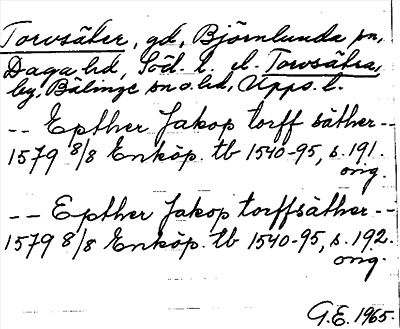 Torvsäter, gd, Björnlunda sn,
Daga hd, Södl. l. el. Torvsätra,
by, Bälinge sn o. hd, Upps. l.
-- Epther Jakop torff säther --
1579 8/8 Enköp. tb 1540-95, s. 191.
orig.
-- Epther Jakop torffsäther --
1579 8/8 Enköp. tb 1540-95, s. 192.
orig.
G.E. 1965.